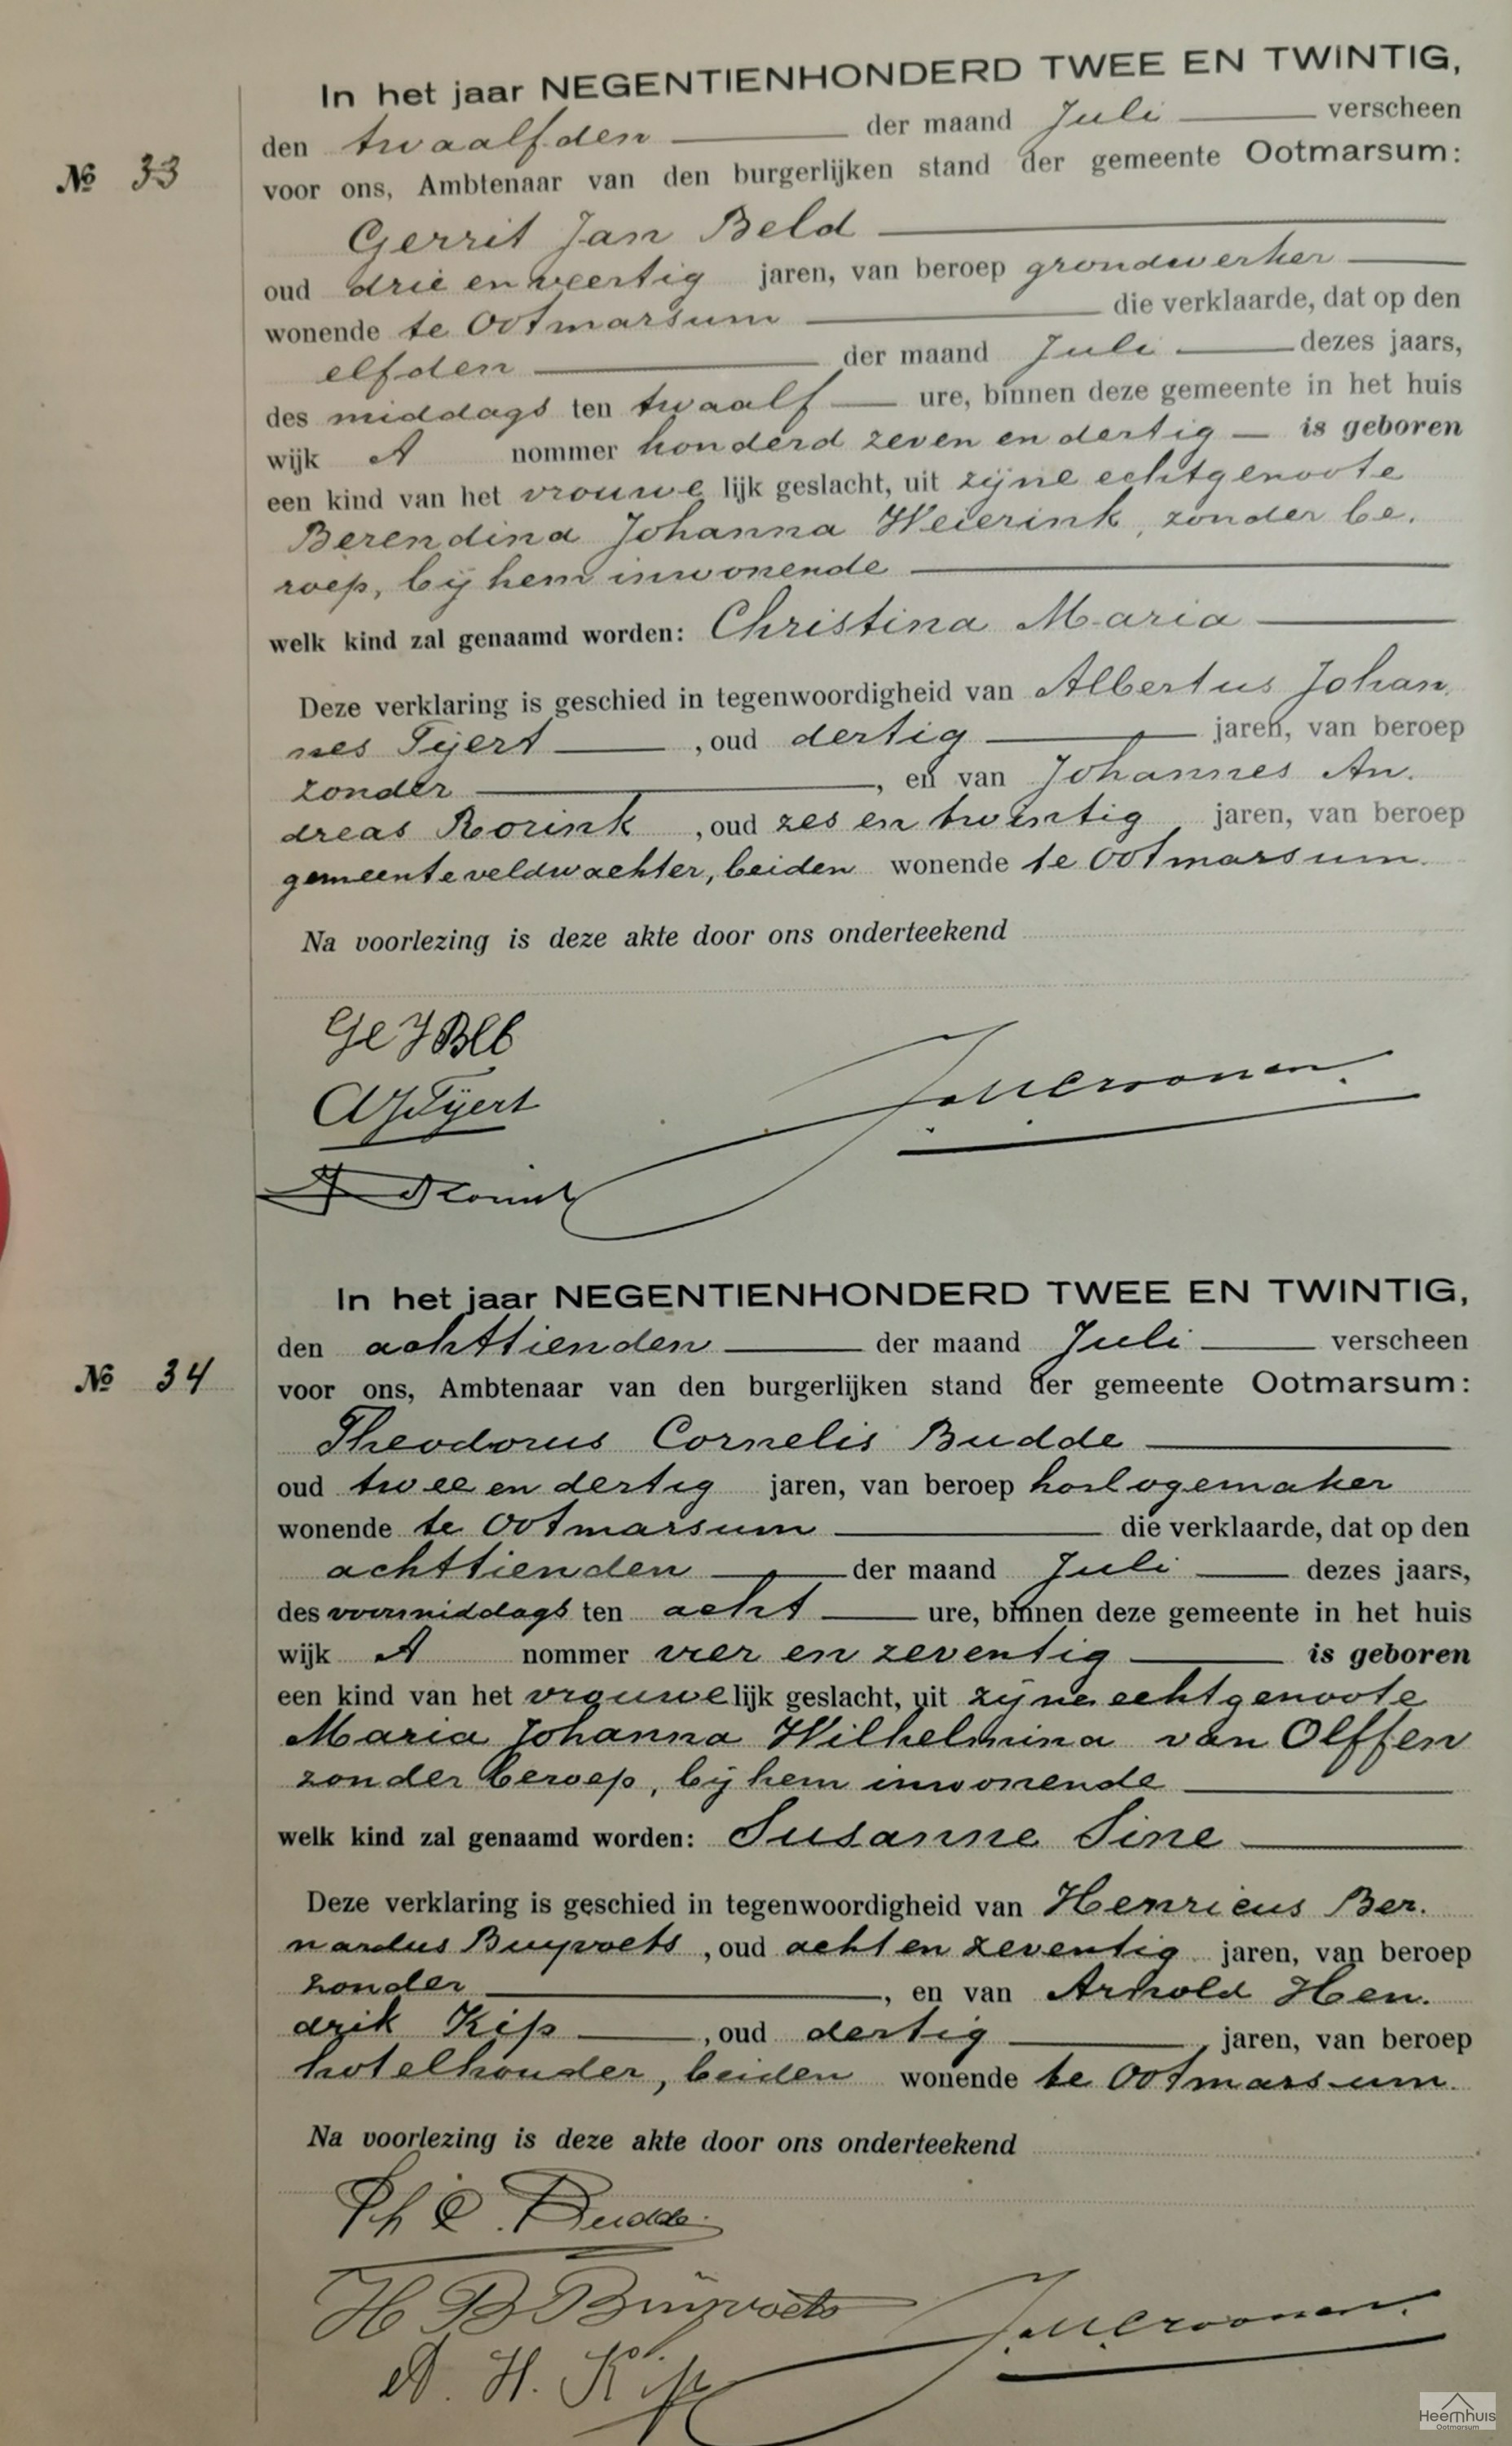 In het jaar NEGENTIENHONDERD TWEE EN TWINTIG,
den twaalfden der maand Juli verscheen
№ 33
voor ons, Ambtenaar van den burgerlijken stand der gemeente Ootmarsum:
Gerrit Jan Beld
oud drie en veertig jaren, van beroep grondwerker
wonende te Ootmarsum die verklaarde, dat op den
elfden der maand Juli dezes jaars,
des middags ten twaalf ure, binnen deze gemeente in het huis
wijk A nommer honderd zeven en dertig is geboren
een kind van het vrouwe lijk geslacht, uit zijne echtgenoote
Berendina Johanna Weierink, zonder be.
roep, bij hem inwonende
welk kind zal genaamd worden: Christina Maria
Deze verklaring is geschied in tegenwoordigheid van Albertus Johan.
nes Tijert , oud dertig jaren, van beroep
zonder , en van Johannes An.
dreas Rorink , oud zes en twintig jaren, van beroep
gemeenteveldwachter, beiden wonende te Ootmarsum.
Na voorlezing is deze akte door ons onderteekend
AJTijert
In het jaar NEGENTIENHONDERD TWEE EN TWINTIG,
den achttienden der maand Juli verscheen
№ 34
voor ons, Ambtenaar van den burgerlijken stand der gemeente Ootmarsum:
Theodorus Cornelis Budde
oud twee en dertig jaren, van beroep horlogemaker
wonende te Ootmarsum die verklaarde, dat op den
achttienden der maand Juli dezes jaars,
des voormiddags ten acht ure, binnen deze gemeente in het huis
wijk A nommer vier en zeventig is geboren
een kind van het vrouwe lijk geslacht, uit zijne echtgenoote
Maria Johanna Wilhelmina van Olffen
zonder beroep, bij hem inwonende
welk kind zal genaamd worden: Susanne Sine
Deze verklaring is geschied in tegenwoordigheid van Henricus Ber.
nardus Buyvoets , oud acht en zeventig jaren, van beroep
zonder , en van Arnold Hen.
drik Kip , oud dertig , jaren, van beroep
hotelhouder, beiden wonende te Ootmarsum.
Na voorlezing is deze akte door ons onderteekend
Th C. Budde.
H B Buijvoets
A. H. Kip
Heemhuis
Ootmarsum